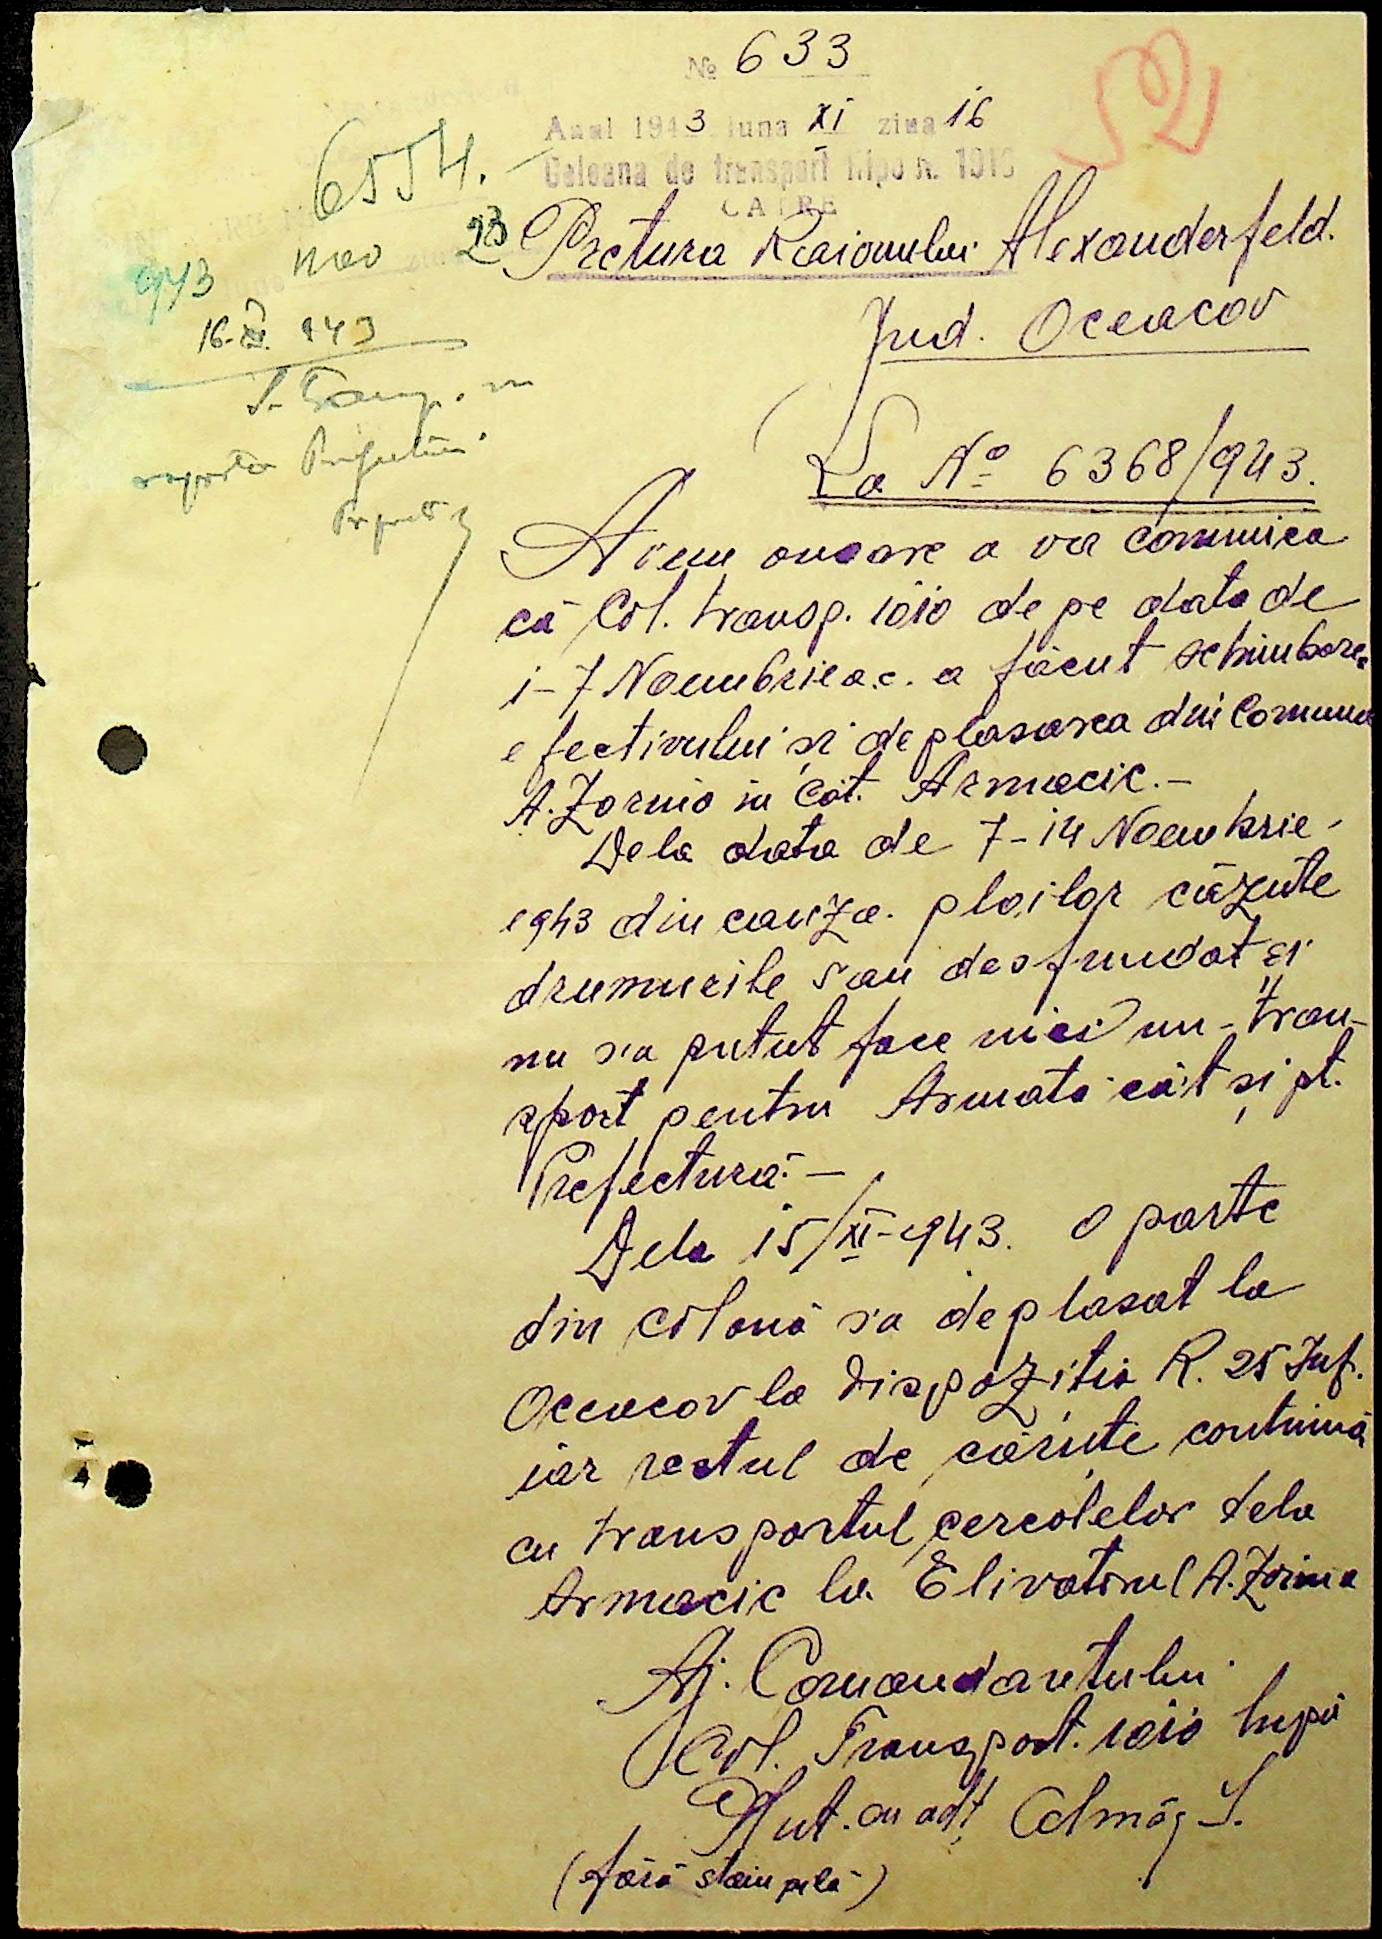 № 633
Anul 1943 luna XI ziua 16
Coloana de transport hipo n. 1010
CATRE
52
6554.
943 nov 23
16-XI. 943
Pretura Raionului Alexanderfeld.
Jud. Oceacov
La No 6368/943.
Avem onoare a va comunica
că Col. transp. 1010 de pe data de
1-7 Noembrie a.c. a făcut schimbarea
efectivului și deplasarea din Comuna
A. Zornio in Cot. Armacic.-
Dela data de 7-14 Noembrie
1943 din cauza ploilor căzute
drumurile sau desfundat și
nu s'a putut face nici un tran-
sport pentru Armata cât și pt.
Prefectură.-
Dela 15/XI-943. O parte
din colonă s'a deplasat la
Oceacov la dispozitia R. 25 Inf.
iar restul de căruțe continuă
cu transportul cerealelor dela
Armacic la Elivatorul A. Zorinia
Aj. Comandantului
Col. Transport. 1010 hipo
Plut. cu adț
(fără stampilă)